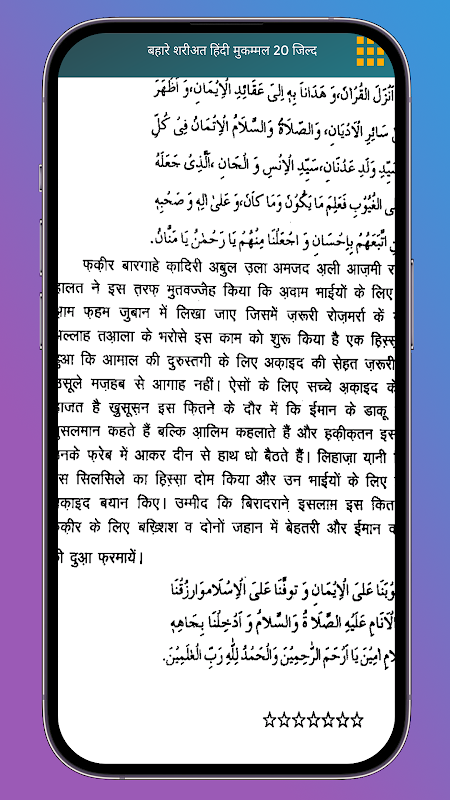 बहारे शरीअत हिंदी मुकम्मल 20 जिल्द
اَنْزَلَ الْقُرْاٰنَ، وَ هَدَانَا بِهٖ اِلٰى عَقَائِدِ الْاِيْمَانِ، وَ اَظْهَرَ
سَائِرِ الْاَدْيَانِ، وَالصَّلَاةُ وَالسَّلَامُ الْاَتَمَّانِ فِىْ كُلِّ
سَيِّدِ وَلَدِ عَدْنَانَ، سَيِّدِ الْاِنْسِ وَ الْجَانِ، اَلَّذِىْ جَعَلَهٗ
الْغُيُوْبِ فَعَلِمَ مَا يَكُوْنُ وَمَا كَانَ، وَ عَلٰى اٰلِهٖ وَ صَحْبِهٖ
اتَّبَعَهُمْ بِاِحْسَانٍ وَ اجْعَلْنَا مِنْهُمْ يَا رَحْمٰنُ يَا مَنَّانُ.
फ़क़ीर बारगाहे क़ादिरी अबुल उला अमजद अ़ली आज़मी र
हालत ने इस त़रफ़ मुतवज्जेह किया कि अ़वाम भाईयों के लिए
फ़हम जुबान में लिखा जाए जिसमें ज़रूरी रोज़मर्रा कें
अल्लाह तआ़ला के भरोसे इस काम को शुरू किया है एक हि़स्स
हुआ कि आमाल की दुरुस्तगी के लिए अक़ाइद की सेहत ज़रूरी
उसूले मज़हब से आगाह नहीं। ऐसों के लिए सच्चे अ़क़ाइद के
हाजत है खुसूसन इस फ़ितने के दौर में कि ईमान के डाकू
मुसलमान कहते हैं बल्कि आ़लिम कहलाते हैं और ह़क़ीक़तन इस
उनके फ़रेब में आकर दीन से हाथ धो बैठते हैं। लिहाज़ा यानी
इस सिलसिले का हि़स्सा दोम किया और उन भाईयों के लिए
अ़क़ाइद बयान किए। उम्मीद कि बिरादराने इसलाम इस किता
फ़क़ीर के लिए बख़्शिश व दोनों जहान में बेहतरी और ईमान व
की दुआ़ फ़रमायें।
عَلَى الْاِيْمَانِ وَ تَوَفَّنَا عَلَى الْاِسْلَامِ وَارْزُقْنَا
الْاَنَامِ عَلَيْهِ الصَّلَاةُ وَالسَّلَامُ وَ اَدْخِلْنَا بِجَاهِهٖ
اٰمِيْنَ يَا اَرْحَمَ الرّٰحِمِيْنَ وَالْحَمْدُ لِلّٰهِ رَبِّ الْعٰلَمِيْنَ.
☆☆☆☆☆☆☆